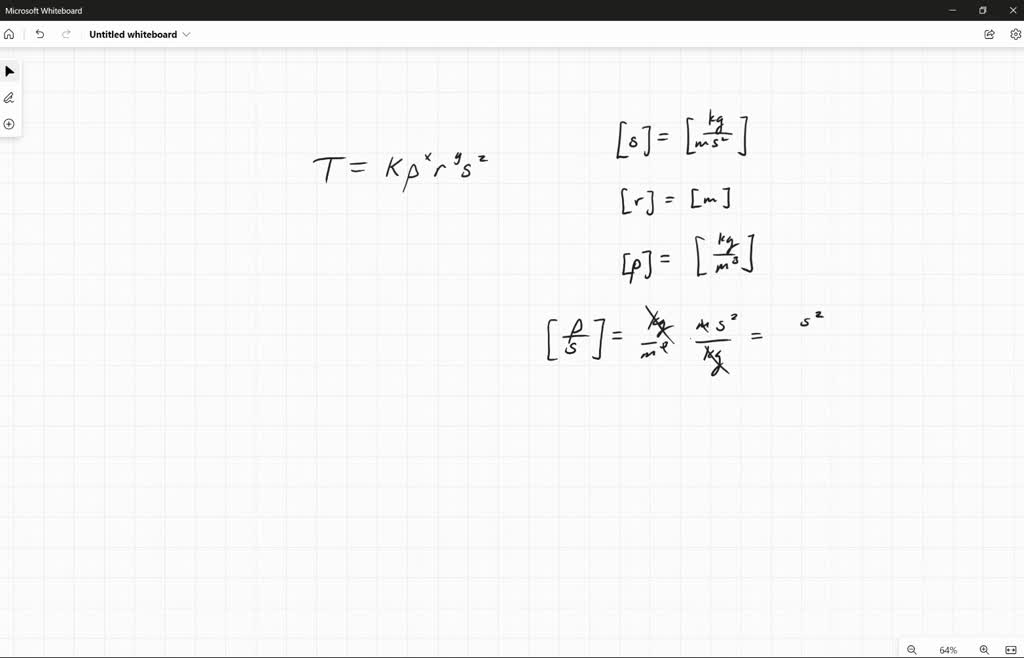 Microsoft Whiteboard
Untitled whiteboard
T = K ρ^x r^y s^z
[s] = [kg / m s²]
[r] = [m]
[ρ] = [kg / m³]
[ρ / s] = kg / m² · m s² / kg = s²
64%